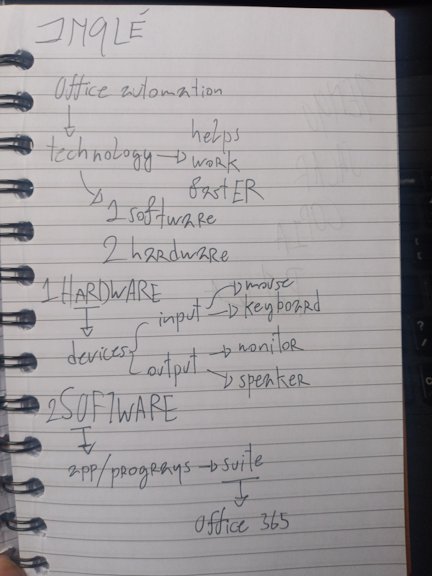 INGLÉ
Office automation
technology → helps
work
fastER
1 software
2 hardware
1 HARDWARE
input → mouse
→ keyboard
devices
output → monitor
→ speaker
2 SOFTWARE
app/prograys → suite
Office 365